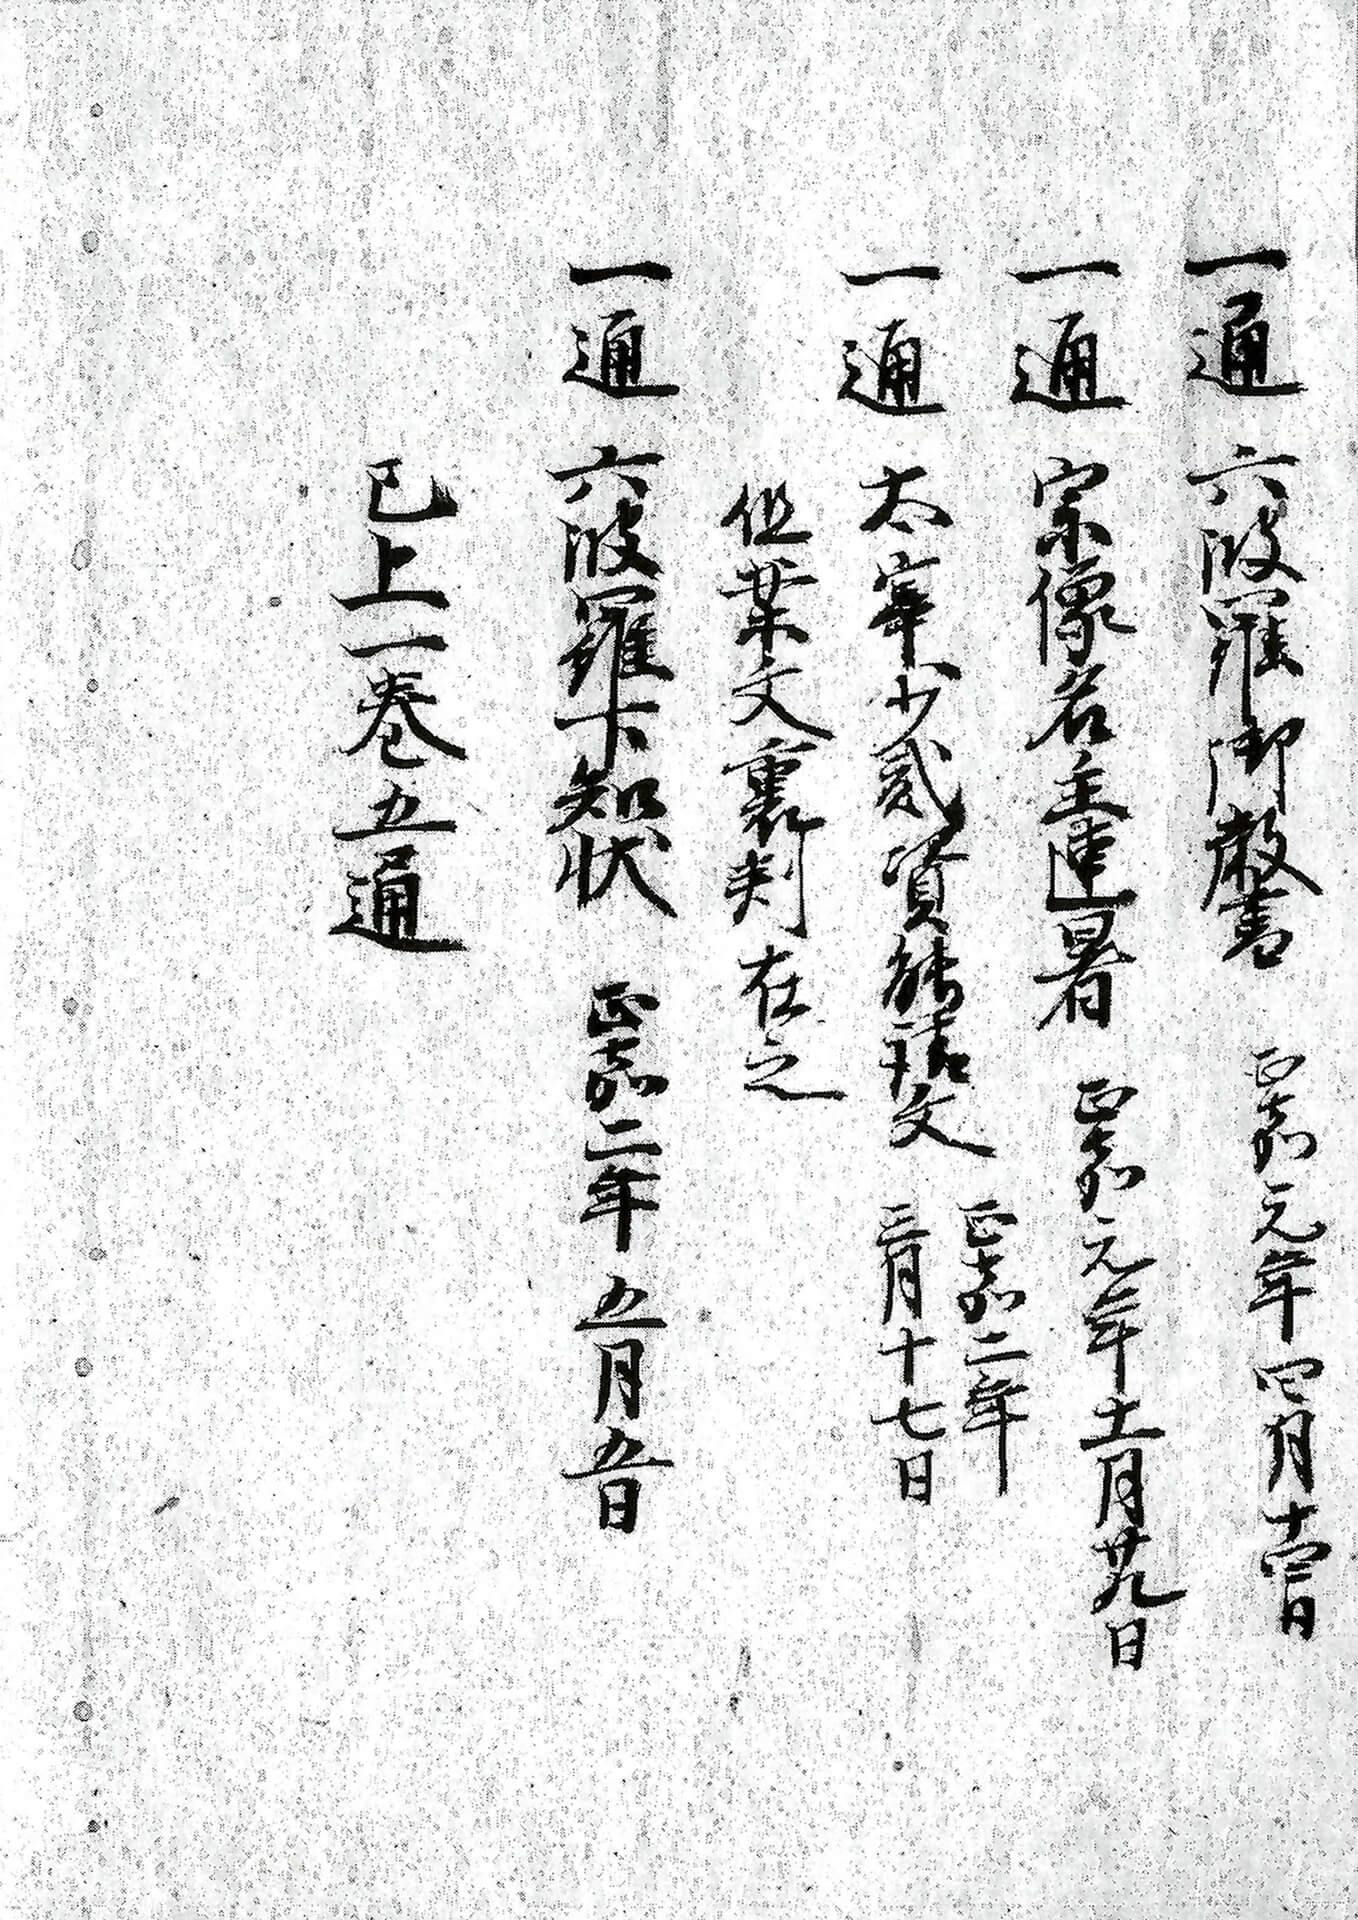 一通 六波羅御教書 正嘉元年四月十 日
一通 宗像名主連署 正嘉元年十一月廿九日
一通 太宰少貳資能請文 正嘉二年
三月十七日
但案文裏判在之
一通 六波羅下知状 正嘉二年五月五日
已上一巻五通